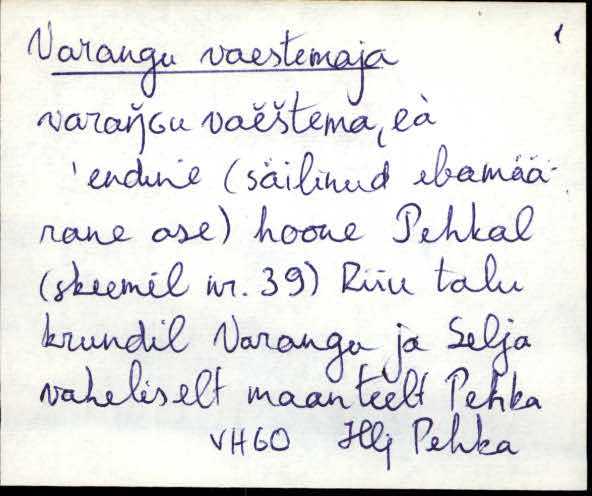 Varangu vaestemaja 1
varaŋ̆ɢu vaĕs̆tema, eà
'endine (säilinud ebamää-
rane ase) hoone Pehkal
(skeemil nr. 39) Riiu talu
krundil Varangu ja Selja
vaheliselt maanteelt Pehka
VH60 Hlj Pehka